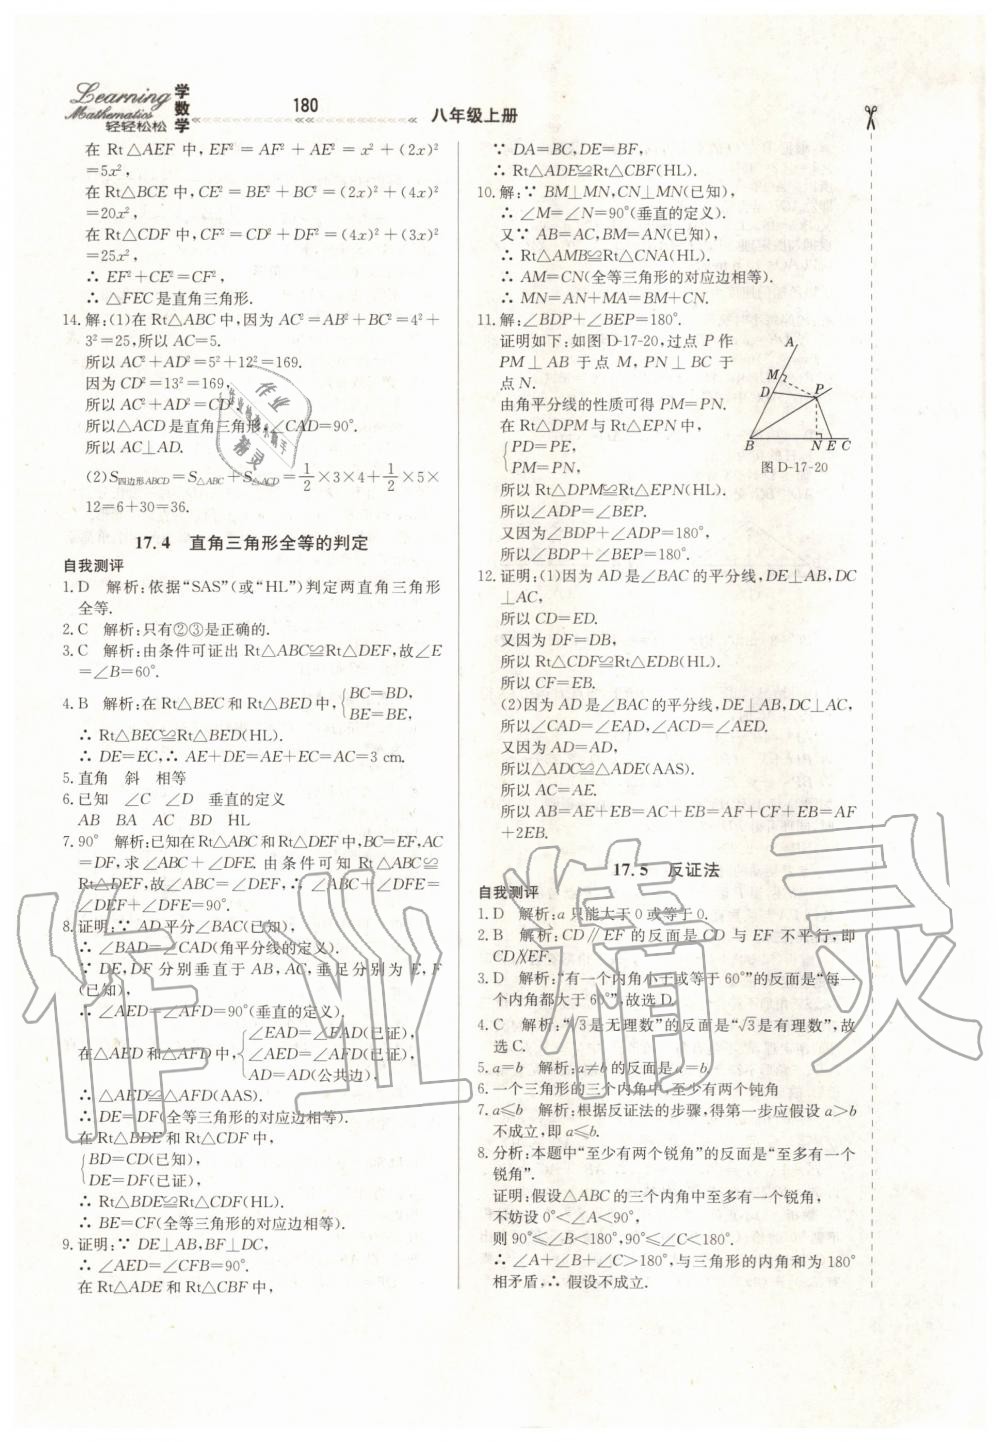 Learning
Mathematics
轻轻松松
学数学
180
八年级上册
在 Rt△AEF 中,EF²=AF²+AE²=x²+(2x)²
=5x²,
在 Rt△BCE 中,CE²=BE²+BC²=(2x)²+(4x)²
=20x²,
在 Rt△CDF 中,CF²=CD²+DF²=(4x)²+(3x)²
=25x²,
∴ EF²+CE²=CF²,
∴ △FEC是直角三角形.
14.解:(1)在 Rt△ABC中,因为 AC²=AB²+BC²=4²+
3²=25,所以 AC=5.
所以 AC²+AD²=5²+12²=169.
因为 CD²=13²=169,
所以 AC²+AD²=CD²
所以△ACD是直角三角形,∠CAD=90°.
所以 AC⊥AD.
(2)S四边形ABCD=S△ABC+S△ACD=1/2×3×4+1/2×5×
12=6+30=36.
17.4 直角三角形全等的判定
自我测评
1.D 解析:依据“SAS”(或“HL”)判定两直角三角形
全等.
2.C 解析:只有②③是正确的.
3.C 解析:由条件可证出 Rt△ABC≌Rt△DEF,故∠E
=∠B=60°.
4.B 解析:在 Rt△BEC 和 Rt△BED中,{BC=BD,
BE=BE,
∴ Rt△BEC≌Rt△BED(HL).
∴ DE=EC,∴ AE+DE=AE+EC=AC=3 cm.
5.直角 斜 相等
6.已知 ∠C ∠D 垂直的定义
AB BA AC BD HL
7.90° 解析:已知在 Rt△ABC 和 Rt△DEF中,BC=EF,AC
=DF,求∠ABC+∠DFE.由条件可知 Rt△ABC≌
Rt△DEF,故∠ABC=∠DEF,∴ ∠ABC+∠DFE=
∠DEF+∠DFE=90°.
8.证明:∵ AD平分∠BAC(已知),
∴ ∠BAD=∠CAD(角平分线的定义).
∵ DE,DF 分别垂直于 AB,AC,垂足分别为 E,F
(已知),
∴ ∠AED=∠AFD=90°(垂直的定义).
在△AED和△AFD中,{∠EAD=∠FAD(已证),
∠AED=∠AFD(已证),
AD=AD(公共边),
∴ △AED≌△AFD(AAS).
∴ DE=DF(全等三角形的对应边相等).
在 Rt△BDE 和 Rt△CDF 中,
{BD=CD(已知),
DE=DF(已证),
∴ Rt△BDE≌Rt△CDF(HL).
∴ BE=CF(全等三角形的对应边相等).
9.证明:∵ DE⊥AB,BF⊥DC,
∴ ∠AED=∠CFB=90°.
在 Rt△ADE 和 Rt△CBF 中,
∵ DA=BC,DE=BF,
∴ Rt△ADE≌Rt△CBF(HL).
10.解:∵ BM⊥MN,CN⊥MN(已知),
∴ ∠M=∠N=90°(垂直的定义).
又∵ AB=AC,BM=AN(已知),
∴ Rt△AMB≌Rt△CNA(HL).
∴ AM=CN(全等三角形的对应边相等).
∴ MN=AN+MA=BM+CN.
11.解:∠BDP+∠BEP=180°.
证明如下:如图 D-17-20,过点 P 作
PM⊥AB 于点 M,PN⊥BC 于
点 N.
由角平分线的性质可得 PM=PN.
在 Rt△DPM 与 Rt△EPN 中,
{PD=PE,
PM=PN,
A
M
D
P
B
N E C
图 D-17-20
所以 Rt△DPM≌Rt△EPN(HL).
所以∠ADP=∠BEP.
又因为∠BDP+∠ADP=180°,
所以∠BDP+∠BEP=180°.
12.证明:(1)因为 AD是∠BAC的平分线,DE⊥AB,DC
⊥AC,
所以 CD=ED.
又因为 DF=DB,
所以 Rt△CDF≌Rt△EDB(HL).
所以 CF=EB.
(2)因为 AD是∠BAC的平分线,DE⊥AB,DC⊥AC,
所以∠CAD=∠EAD,∠ACD=∠AED.
又因为 AD=AD,
所以△ADC≌△ADE(AAS).
所以 AC=AE.
所以 AB=AE+EB=AC+EB=AF+CF+EB=AF
+2EB.
17.5 反证法
自我测评
1.D 解析:a只能大于0或等于0.
2.B 解析:CD∥EF 的反面是 CD 与 EF 不平行,即
CD∦EF.
3.D 解析:“有一个内角小于或等于 60°”的反面是“每一
个内角都大于 60°”,故选 D.
4.C 解析:“√3是无理数”的反面是“√3是有理数”,故
选 C.
5.a=b 解析:a≠b 的反面是 a=b.
6.一个三角形的三个内角中,至少有两个钝角
7.a⩽b 解析:根据反证法的步骤,得第一步应假设 a>b
不成立,即 a⩽b.
8.分析:本题中“至少有两个锐角”的反面是“至多有一个
锐角”.
证明:假设△ABC的三个内角中至多有一个锐角,
不妨设 0°<∠A<90°,
则 90°⩽∠B<180°,90°⩽∠C<180°.
∴ ∠A+∠B+∠C>180°,与三角形的内角和为 180°
相矛盾,∴ 假设不成立.
作业精灵